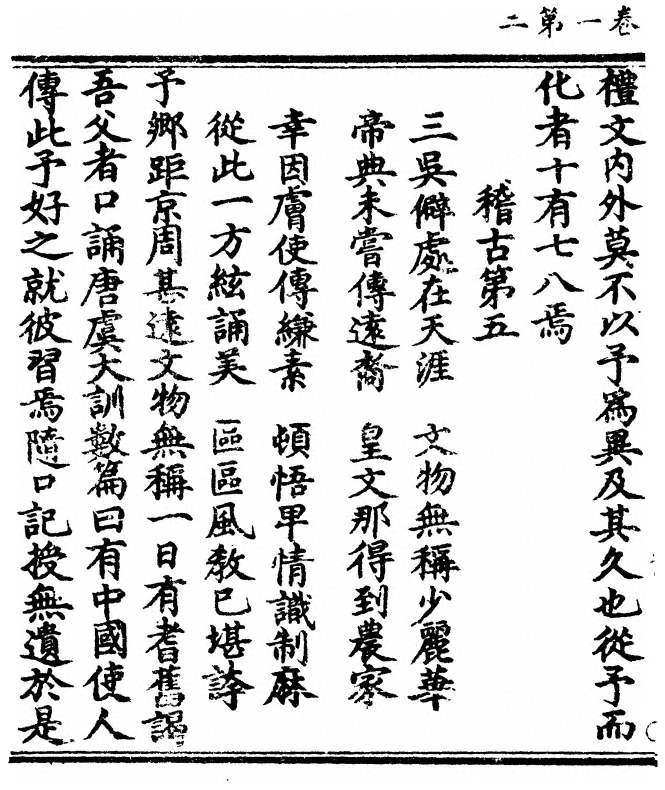 卷一第二
禮文内外莫不以予爲異及其久也從予而
化者十有七八焉
稽古第五
三吳僻處在天涯 文物無稱少麗華
帝典未嘗傳遠裔 皇文那得到農家
幸因膚使傳縑素 頓悟卑情識制麻
從此一方絃誦美 區區風教已堪誇
予鄉距京周甚遠文物無稱一日有耆舊謁
吾父者口誦唐虞大訓數篇曰有中國使人
傳此予好之就彼習焉隨口記授無遺於是